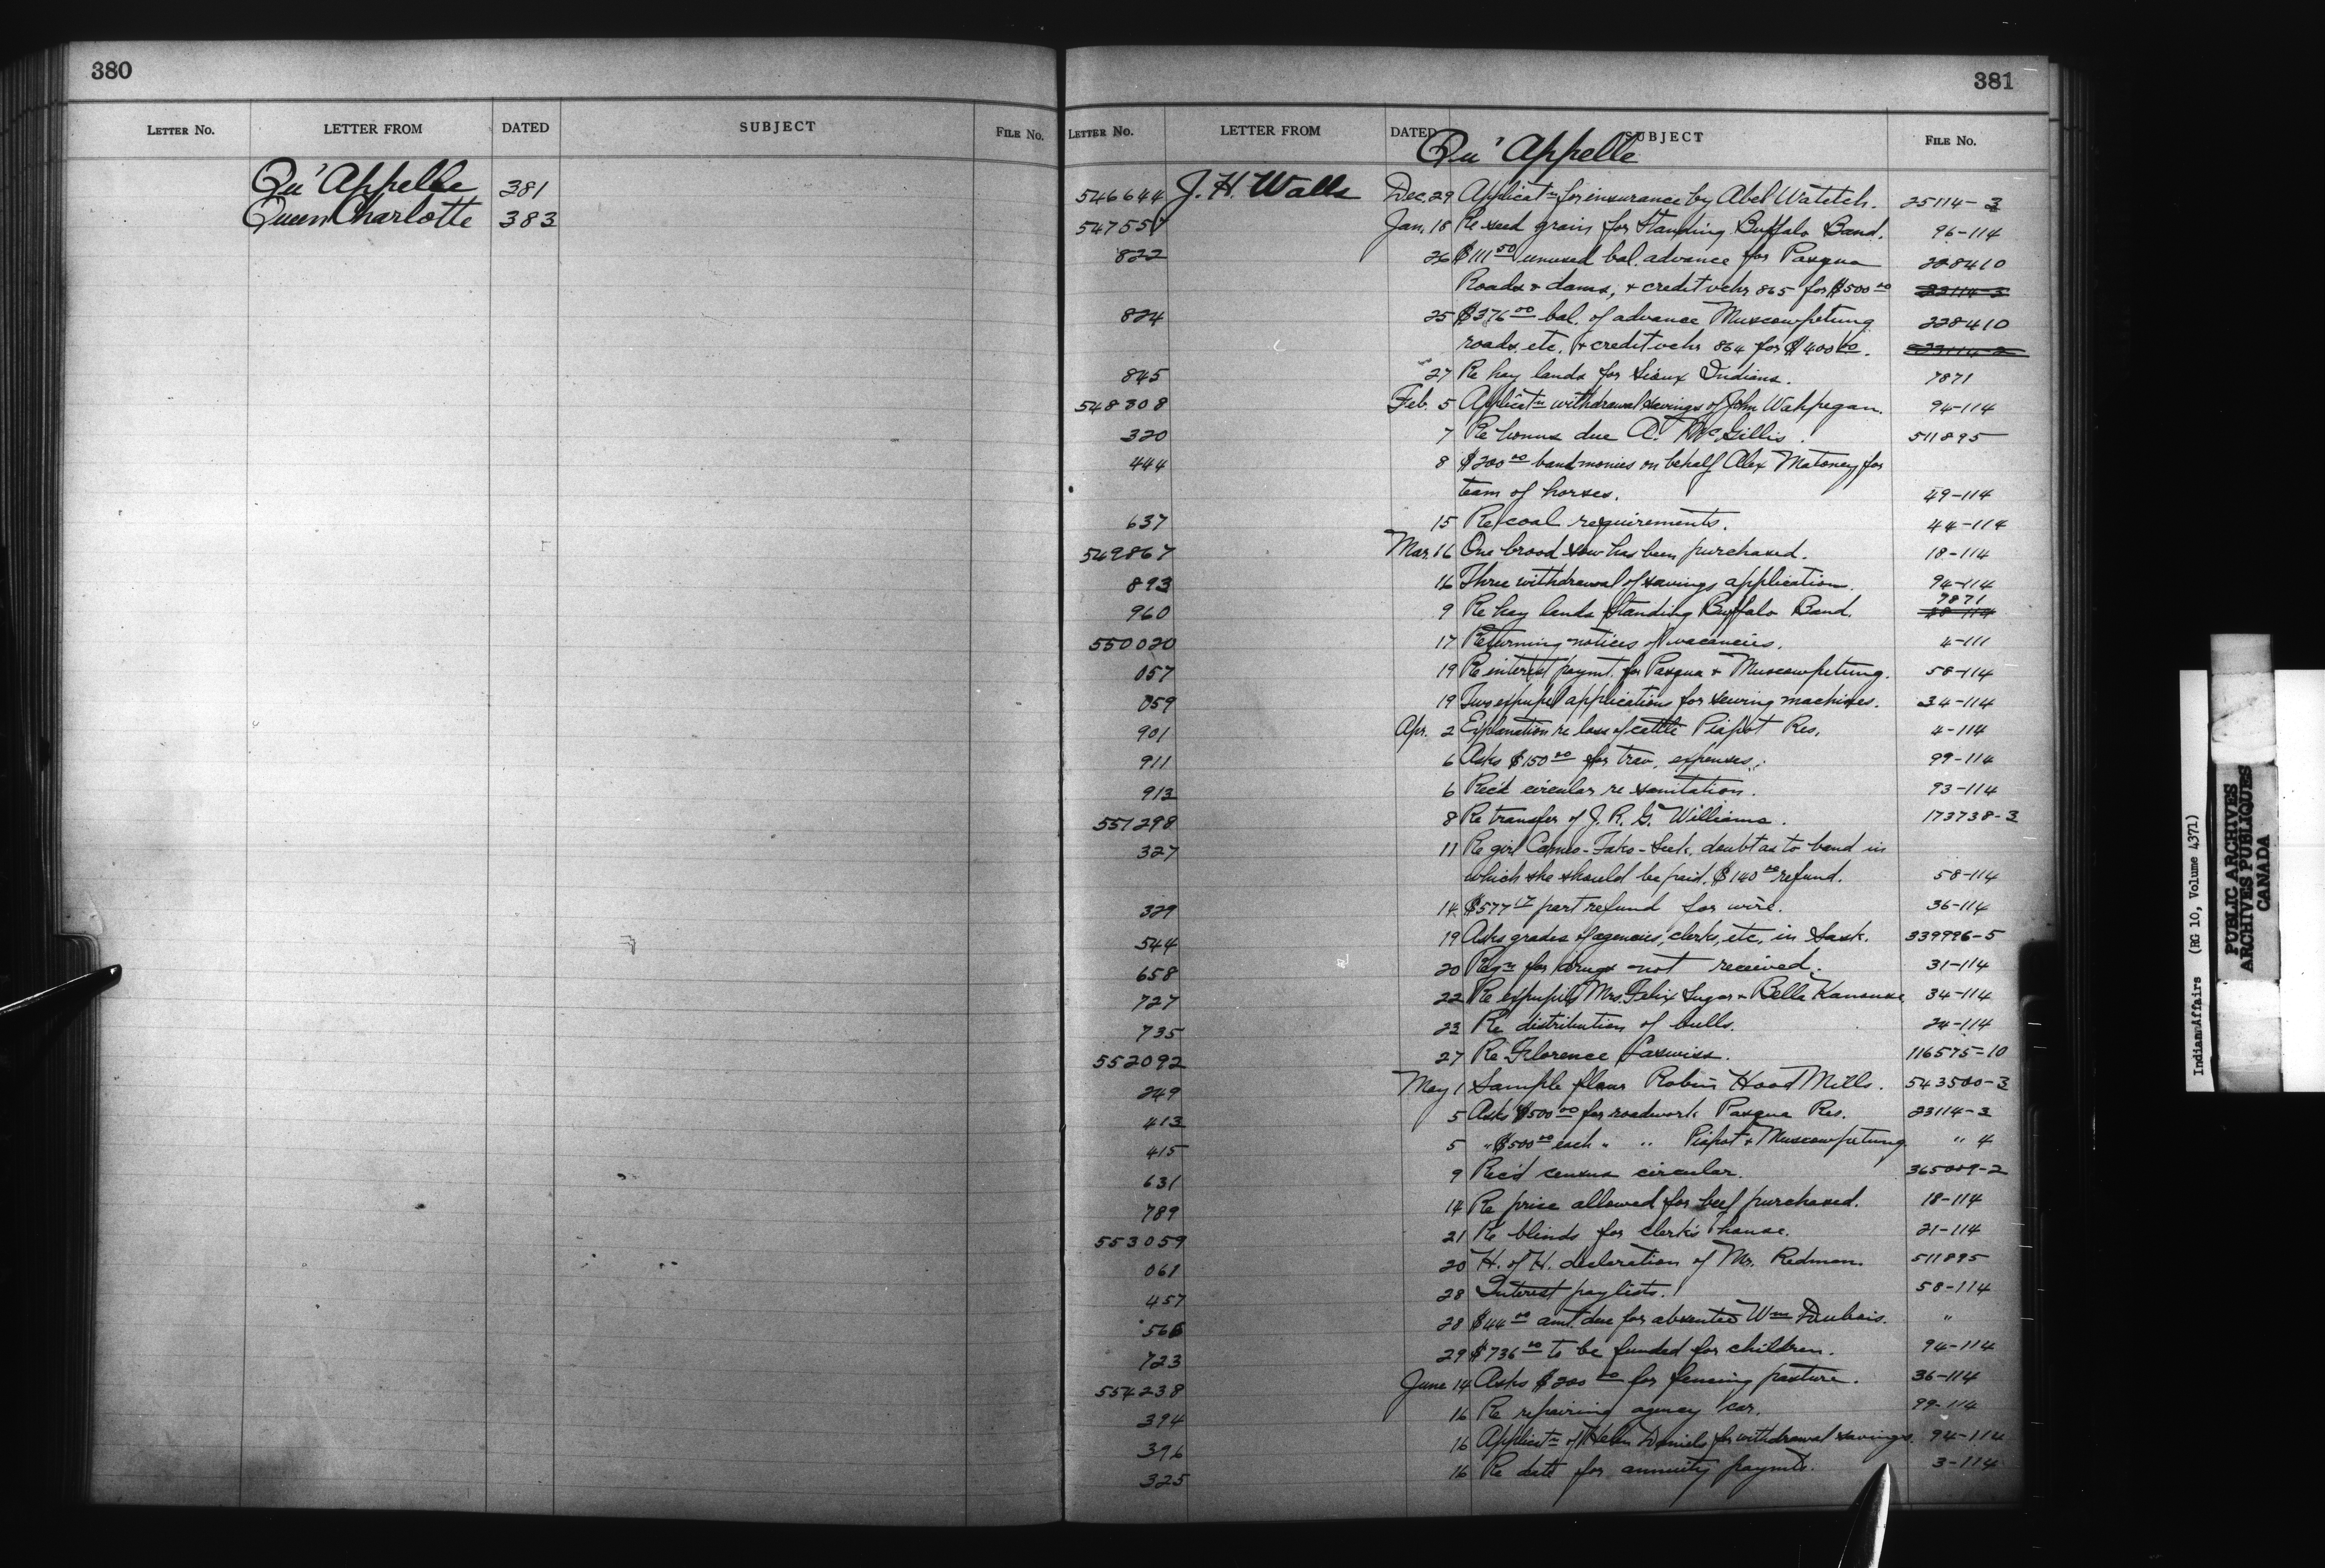 380
LETTER No. LETTER FROM DATED SUBJECT FILE No.
Qu'Appelle 381
Queen Charlotte 383
381
LETTER No. LETTER FROM DATED SUBJECT FILE No.
Qu'Appelle
546644 J. H. Walls Dec. 29 Applicatn for insurance by Abel Watetch. 25114-3
547557 Jan. 18 Re seed grain for Standing Buffalo Band. 96-114
822 26 $111 50 unused bal. advance for Pasqua 228410
Roads & dams, & credit vchr 865 for $500 00 23114-3
824 25 $376 00 bal. of advance Muscowpetung 228410
roads, etc. & credit vchr 864 for $400 00. 23114-2
845 27 Re hay lands for Sioux Indians. 7871
548308 Feb. 5 Applicatn withdrawal savings of John Wahpegan. 94-114
320 7 Re bonus due A. McGillis. 511895
444 8 $200 00 band monies on behalf Alex Matoney for
team of horses. 49-114
637 15 Re coal requirements. 44-114
549867 Mar. 16 One brood sow has been purchased. 18-114
893 16 Three withdrawal of savings application. 94-114
7871
960 9 Re hay lands Standing Buffalo Band. 28-114
550020 17 Returning notices of vacancies. 4-111
057 19 Re interest paymt. for Pasqua & Muscowpetung. 58-114
059 19 Two expupil applications for sewing machines. 34-114
901 Apr. 2 Explanation re loss of cattle Piapot Res. 4-114
911 6 Asks $150 00 for trav. expenses. 99-114
913 6 Rec'd circular re sanitation. 93-114
551298 8 Re transfer of J. R. G. Williams. 173738-3
327 11 Re girl doubt as to band in
which she should be paid. $140 00 refund. 58-114
329 14 $577 17 part refund for wire. 36-114
544 19 Asks grades of agencies, clerks, etc. in Sask. 339996-5
658 20 Reqn for drugs not received. 31-114
727 22 Re expupils Mrs. Felix Sugar & Bella Kanouse 34-114
735 23 Re distribution of bulls. 24-114
552092 27 Re Florence 116575-10
249 May 1 Sample flour Robin Hood Mills. 543500-3
413 5 Asks $500 00 for roadwork Pasqua Res. 23114-3
415 5 " $500 00 each " " Piapot & Muscowpetung " 4
631 9 Rec'd census circular. 365009-2
789 14 Re price allowed for beef purchased. 18-114
553059 21 Re blinds for clerk's house. 21-114
061 20 H. of H. declaration of Mr. Redman. 511895
457 28 Interest paylists. 58-114
566 28 $44 00 amt. due for absentee Wm Dubois. "
723 29 $736 00 to be funded for children. 94-114
554238 June 14 Asks $200 00 for fencing pasture. 36-114
394 16 Re repairing agency car. 99-114
396 16 Applicatn of Helen Daniels for withdrawal savings. 94-114
325 16 Re date for annuity paymts. 3-114
Indian Affairs (RG 10, Volume 4371)
PUBLIC ARCHIVES
ARCHIVES PUBLIQUES
CANADA